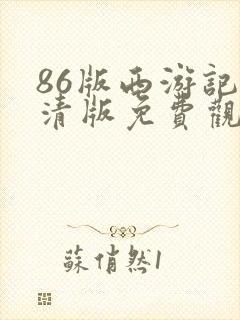 86版西游記
清版免費觀
蘇俏然1